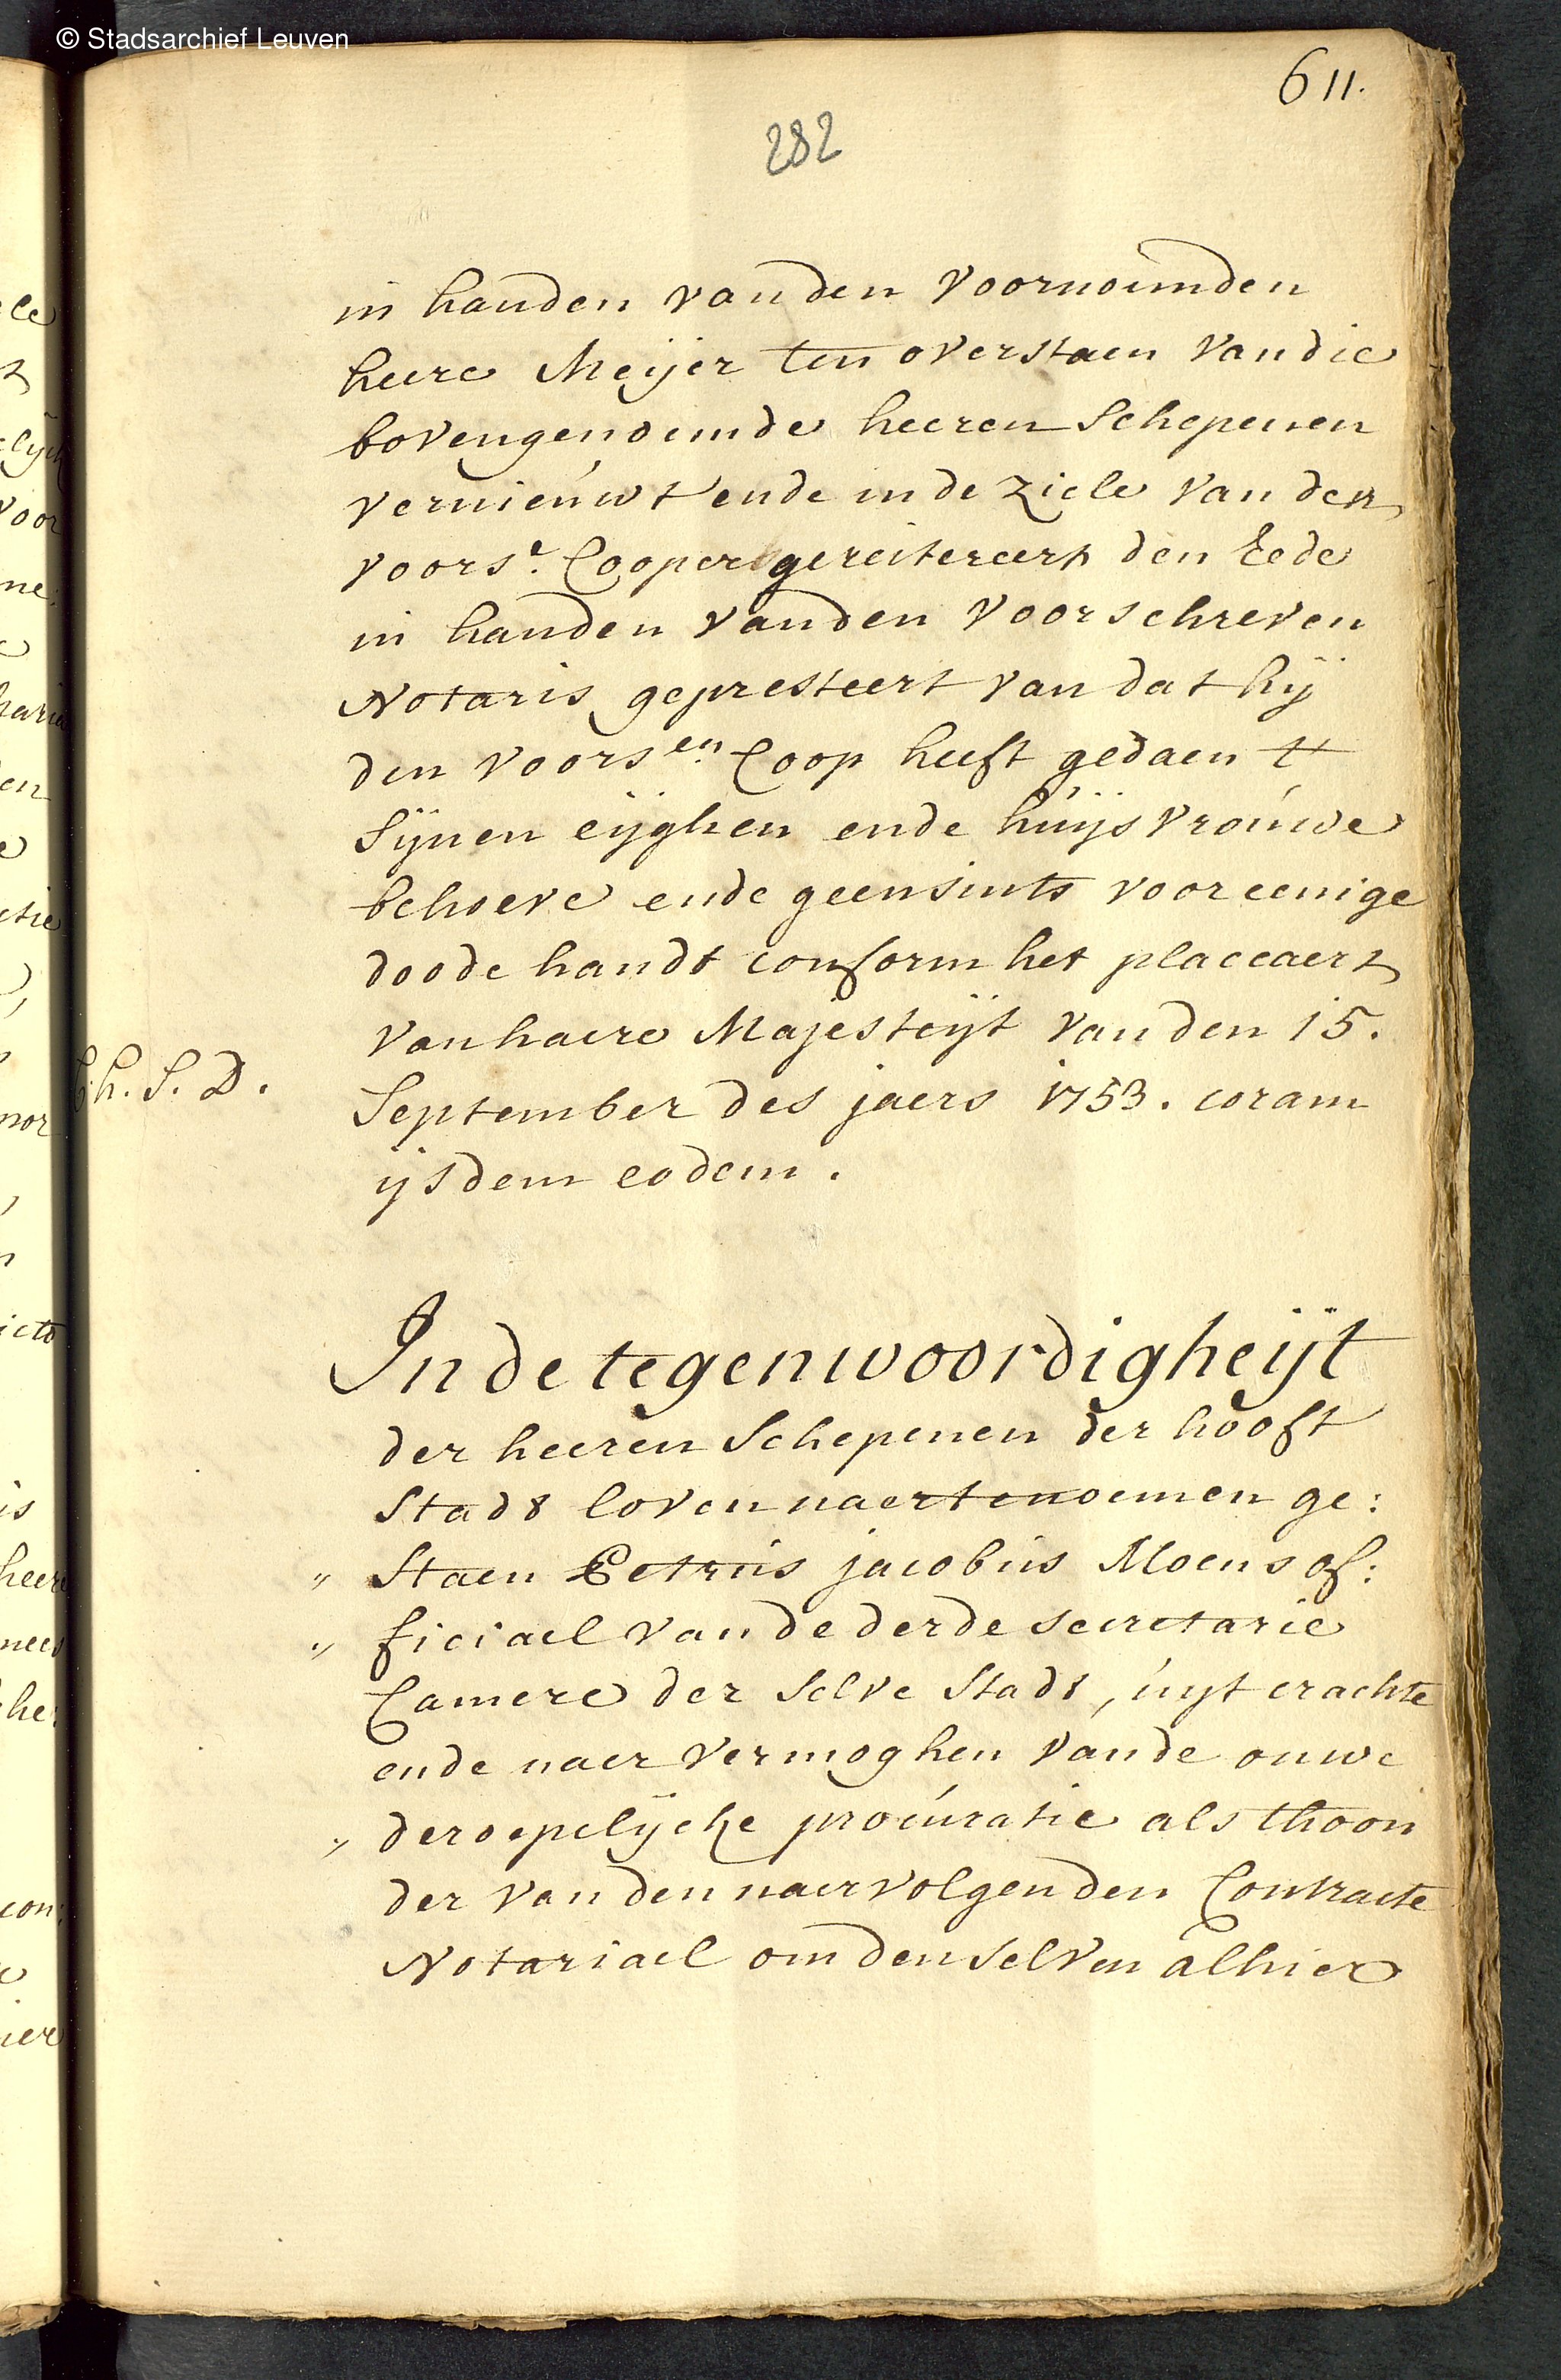 © Stadsarchief Leuven
611.
282
in handen van den voornoemden
heere Meijer ten overstaen van die
bovengenoemde heeren Schepenen
vernieúwt ende in de ziele van den
voorse. Cooper gereitereert den Eede
in handen vanden voorschreven
Notaris gepresteert van dat hij
den voorsen. Coop heeft gedaen t'
Sijnen eijghen ende húijsvroúwe
behoeve ende geensints voor eenige
doode handt conform het placcaert
van haere Majesteijt van den 15.
Ch. S. D.
September des jaers 1753. coram
ijsdem eodem.
In de tegenwoordigheijt
der heeren Schepenen der hooft
Stadt loven naertenoemen ge:
" Staen Petrús jacobús Moens of:
" ficiael van de derde secretarie
Camere der selve Stadt, úijt crachte
ende naer vermoghen vande onwe
" deroepelijcke procúratie als thoon
der van den naervolgenden Contracte
Notariael om den selven alhier